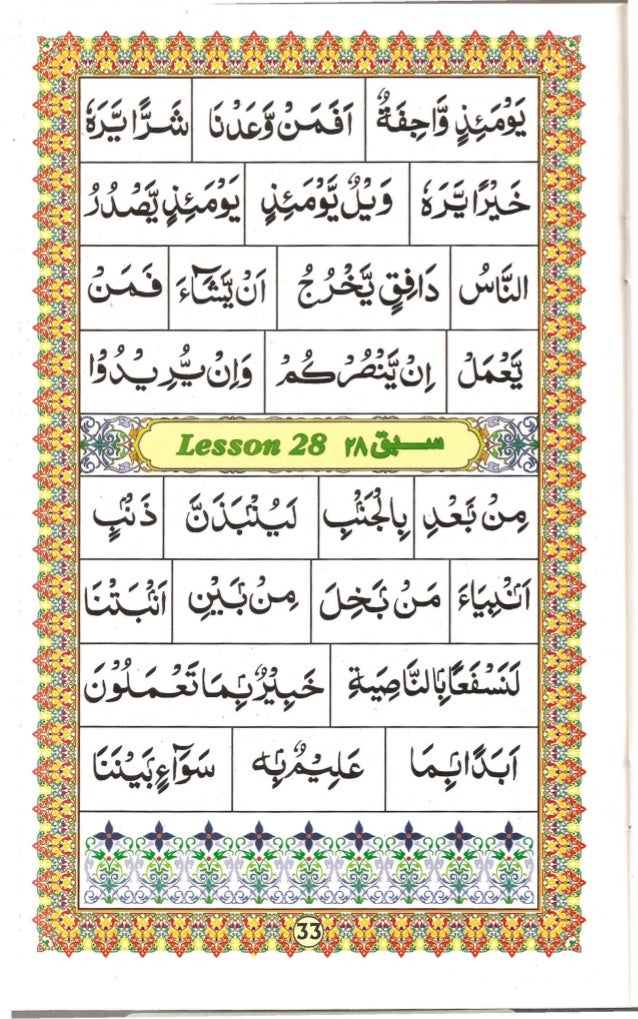 يَوْمَئِذٍ وَّاجِفَةٌ اَفَمَنْ وَّعَدْنَا شَرًّا يَّرَهٗ
خَيْرًا يَّرَهٗ وَيْلٌ يَّوْمَئِذٍ يَوْمَئِذٍ يَّصْدُرُ
النَّاسُ دَافِقٍ يَّخْرُجُ اَنْ يَّشَآءَ فَمَنْ
يَّعْمَلْ اِنْ يَّنْصُرْكُمْ وَاِنْ يُّرِيْدُوْا
Lesson 28 سبق ۲۸
مِنْۢ بَعْدِ بِالْجَنْۢبِ لَيُنْۢبَذَنَّ ذَنْۢبٍ
اَنْۢبِيَاءَ مَنْۢ بَخِلَ مِنْۢ بَيْنِ اَنْۢبَتْنَا
لَنَسْفَعًاۢ بِالنَّاصِيَةِ خَبِيْرٌۢ بِمَا تَعْمَلُوْنَ
اَبَدًاۢ بِمَا عَلِيْمٌۢ بِهٖ سَوَآءٍۢ بَيْنَنَا
33